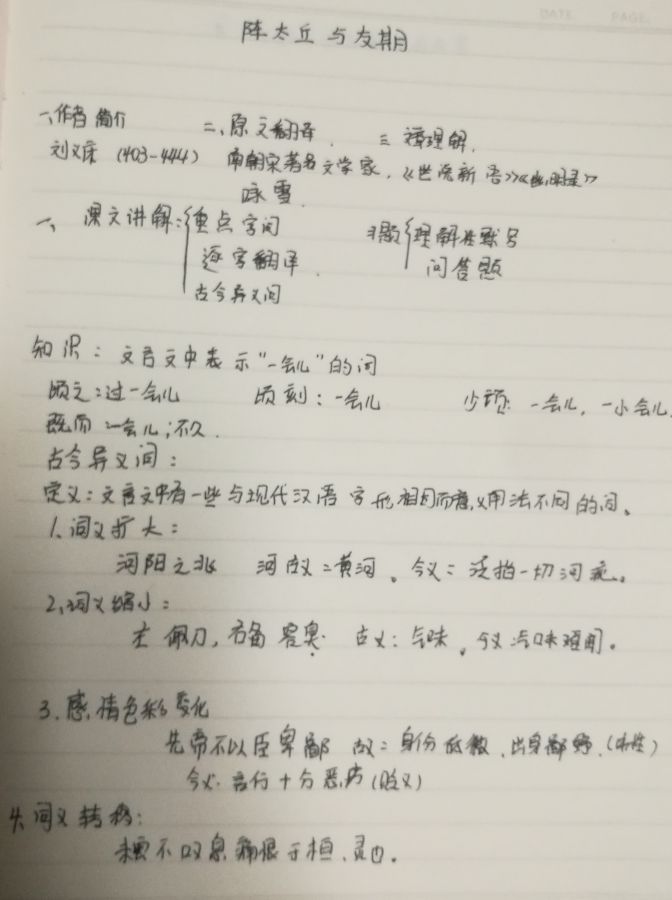 DATE PAGE
陈太丘与友期
一、作者简介 二、原文翻译. 三 理解.
刘义庆 (403-444) 南朝宋著名文学家,《世说新语》《幽明录》
咏雪.
一、课文讲解: 重点字词 习题 理解性默写
逐字翻译. 问答题
古今异义词
知识: 文言文中表示“一会儿”的词
顷之:过一会儿 顷刻:一会儿 少顷: 一会儿,一小会儿.
既而:一会儿;不久.
古今异义词:
定义:文言文中有一些与现代汉语字形相同而意义用法不同的词。
1.词义扩大:
河阳之北 河 古义:黄河。今义:泛指一切河流。
2.词义缩小:
左佩刀,右备容臭. 古义:气味。今义 难闻。
3.感情色彩变化
先帝不以臣卑鄙 古义:身份低微、出身鄙野.(中性)
今义:言行十分恶劣(贬义)
4.词义转移:
未尝不叹息痛恨于桓、灵也。